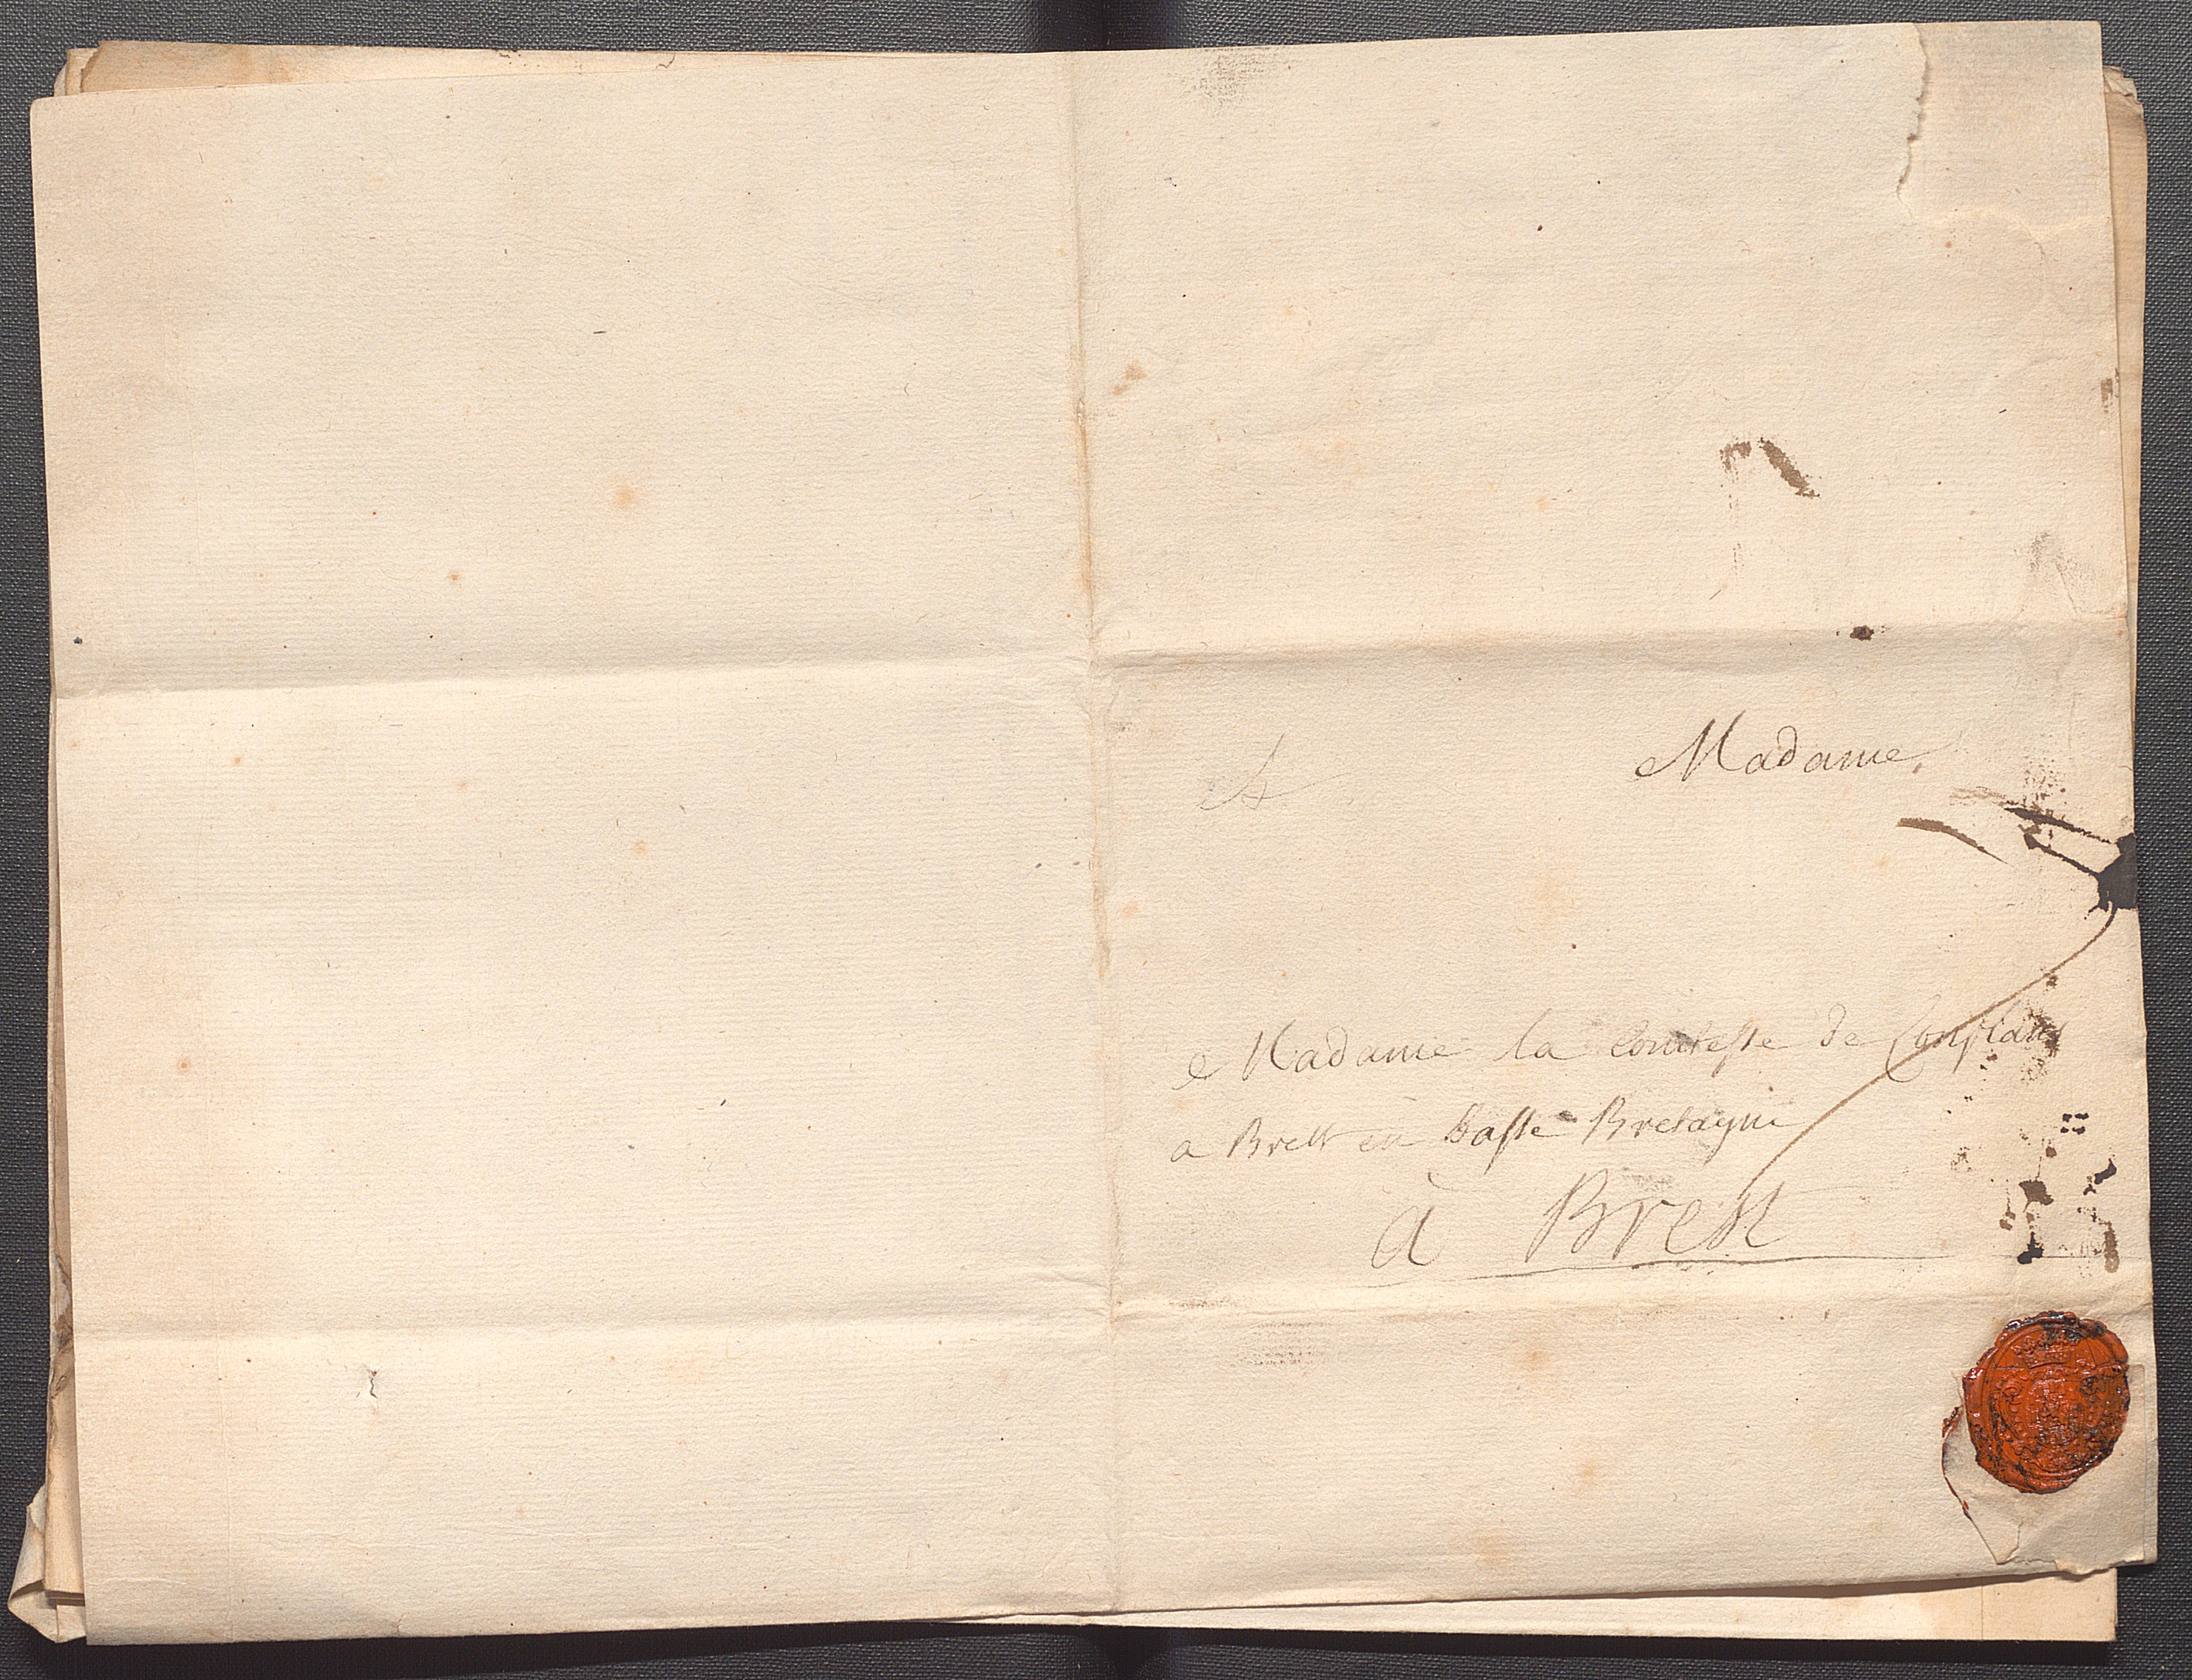 A Madame
Madame la Comtesse de Conflans
a Brest en basse Bretagne
à Brest